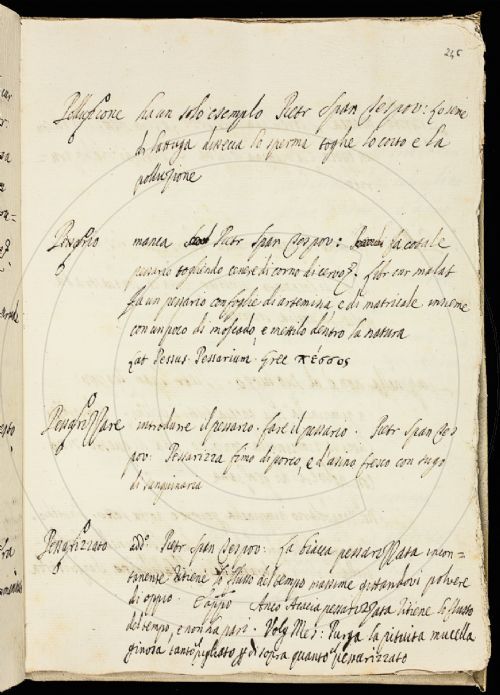 246
Polluzione ha un solo esemplo Pietr Span Tes pov: Lo seme
di lattuga disecca lo sperma toglie lo coito e la
polluzione
Pessario manca Pietr Span Tes pov: fa cotale
pesario togliendo cenere di corno di cervo. Libr cur malat
fa un pessario con foglie di artemisia, e di matricale insieme
con un poco di moscado, e mettilo dentro la natura
Lat Pessus. Pessarium. Grec πέσσος
Pessarizzare introdurre il pessario. fare il pessario. Pietr Span Tes
pov: Pessarizza fimo di porco, e d'asino fresco con sugo
di sanguinaria
Pessarizzato add. Pietr Span Tes pov: La biacca pessarizzata incon=
tanente ritiene lo flusso del tempo massime gittandovi polvere
di oppio. E appo Anco Acacia pessarizzata ritiene lo flusso
del tempo, e non ha pari. Volg Mes: Purga la pituita mucella
ginosa tanto pigliato di sopra quanto pessarizzato